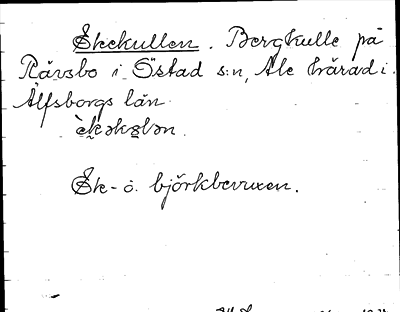 Ekekullen. Bergkulle på
Rävsbo i Östad s:n, Ale härad i
Älfsborgs län
Ek- o. björkbevuxen.